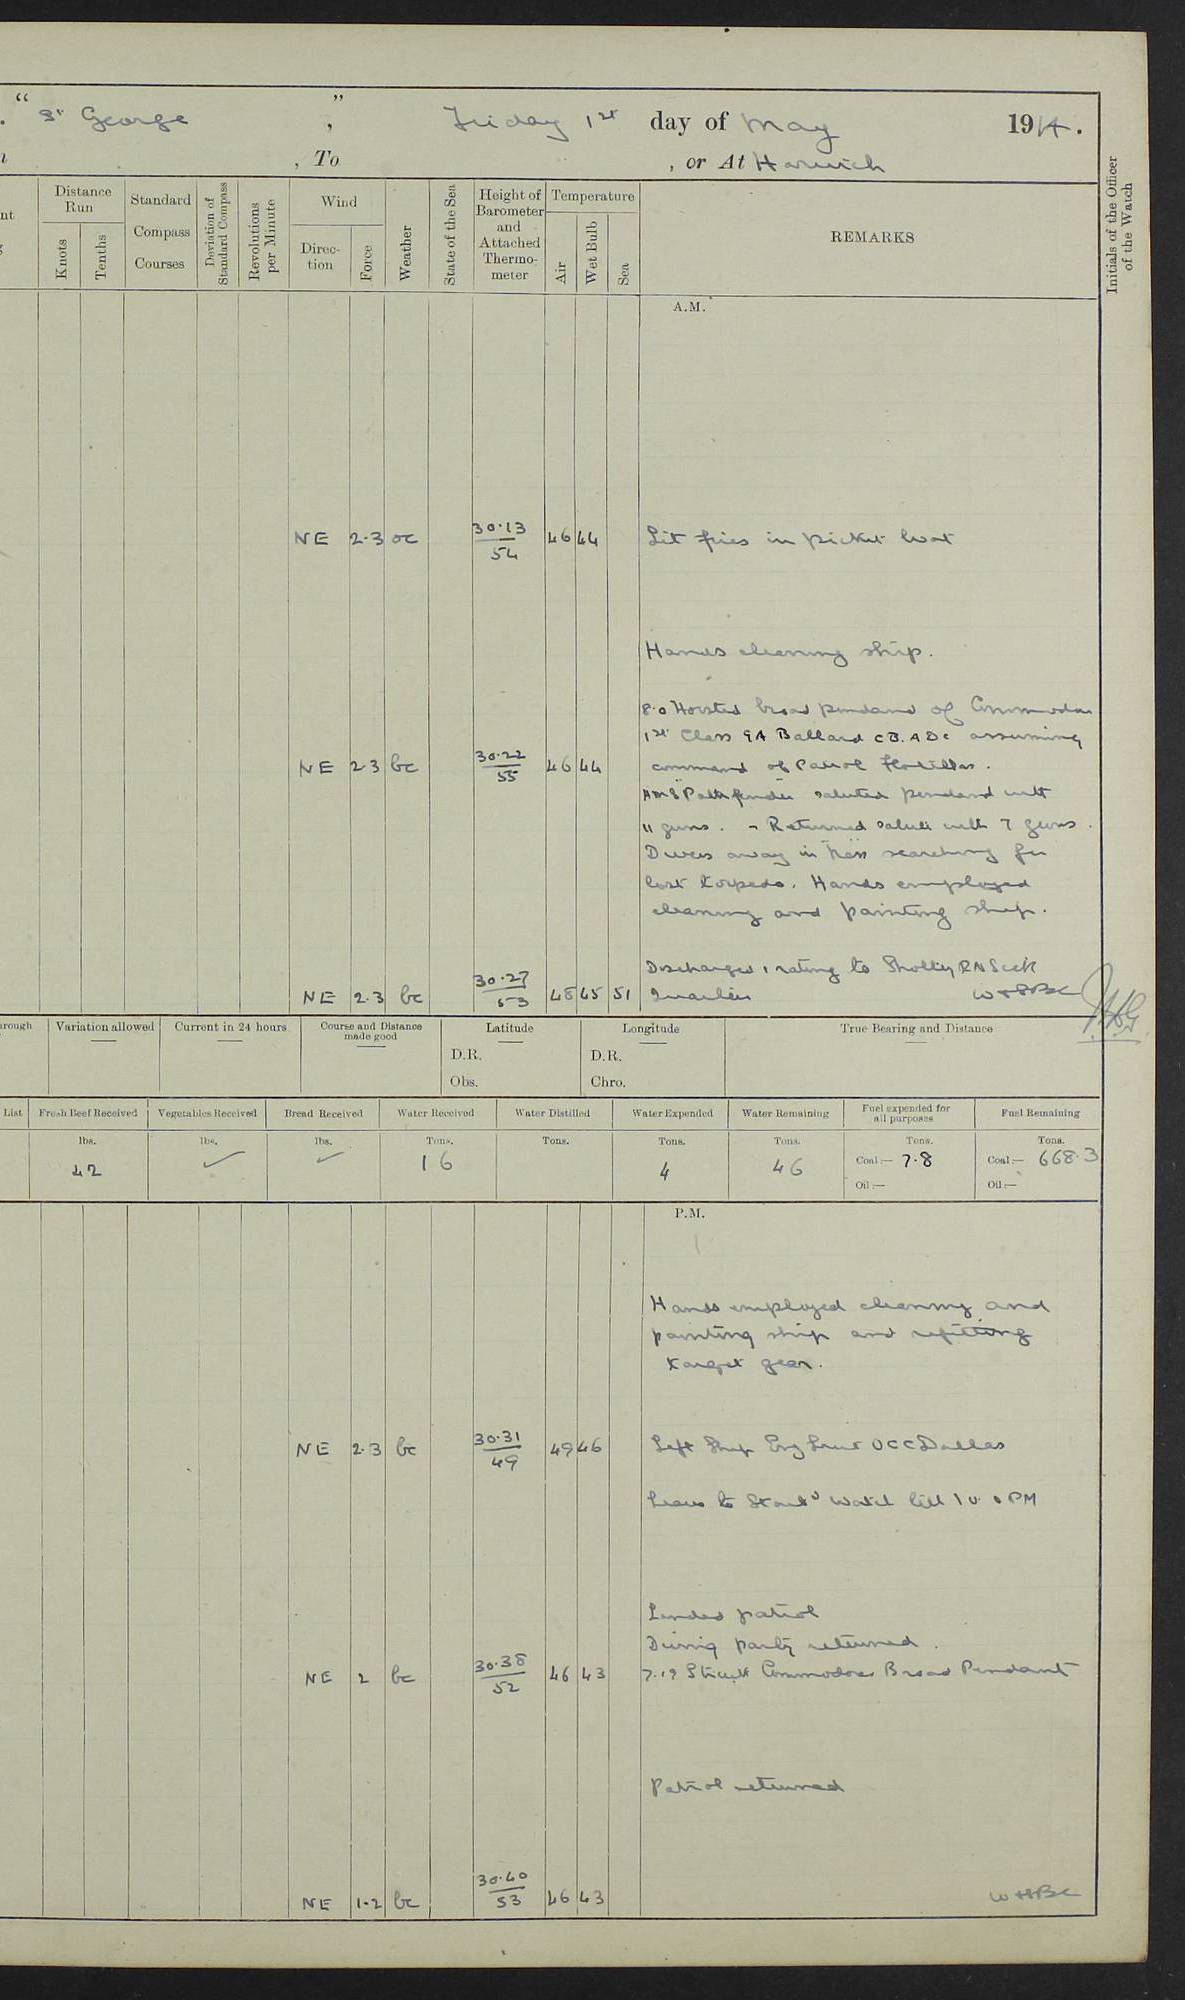 “ St George ” , Friday 1st day of May 1914.
, To , or At Harwich
Distance Run
Knots
Tenths
Standard Compass Courses
Deviation of Standard Compass
Revolutions per Minute
Wind
Direction
Force
Weather
State of the Sea
Height of Barometer and Attached Thermometer
Temperature
Air
Wet Bulb
Sea
REMARKS
Initials of the Officer of the Watch
A.M.
NE 2.3 oc 30.13/54 46 44 Lit fires in picket boat
Hands cleaning ship.
8.0 Hoisted broad pendand of Commodore
1st Class GA Ballard CB. ADC assuming
NE 2.3 bc 30.22/55 46 44 command of Patrol Flotillas.
HMS Pathfinder saluted pendand with
11 guns. - Returned salute with 7 guns.
Divers away in searching for
lost torpedo. Hands employed
cleaning and painting ship.
Discharged 1 rating to Shotley RN Sick
NE 2.3 bc 30.27/53 48 45 51 Quarters
Variation allowed
Current in 24 hours
Course and Distance made good
Latitude
D.R.
Obs.
Longitude
D.R.
Chro.
True Bearing and Distance
List
Fresh Beef Received
Vegetables Received
Bread Received
Water Received
Water Distilled
Water Expended
Water Remaining
Fuel expended for all purposes
Fuel Remaining
lbs. lbs. lbs. Tons. Tons. Tons. Tons. Tons. Tons.
42 ✓ ✓ 16 4 46 Coal:— 7.8 Coal:— 668.3
Oil:— Oil:—
P.M.
Hands employed cleaning and
painting ship and refitting
target gear.
NE 2.3 bc 30.31/49 49 46 Left Ship Eng Lieut OCC Dallas
Leave to Starbd Watch till 10.0 PM
Landed patrol
Diving party returned.
NE 2 bc 30.38/52 46 43 7.19 Struck Commodores Broad Pendant
Patrol returned
NE 1.2 bc 30.40/53 46 43